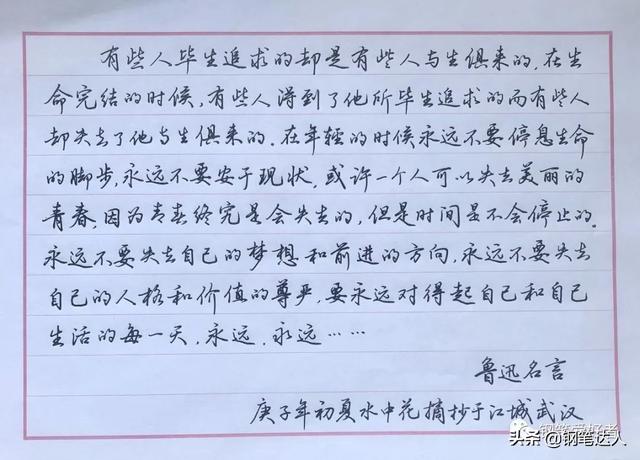 有些人毕生追求的却是有些人与生俱来的，在生
命完结的时候，有些人得到了他所毕生追求的而有些人
却失去了他与生俱来的。在年轻的时候永远不要停息生命
的脚步，永远不要安于现状，或许一个人可以失去美丽的
青春，因为青春终究是会失去的，但是时间是不会停止的。
永远不要失去自己的梦想和前进的方向，永远不要失去
自己的人格和价值的尊严，要永远对得起自己和自己
生活的每一天，永远，永远……
鲁迅名言
庚子年初夏水中花摘抄于江城武汉
钢笔爱好者
头条@钢笔达人